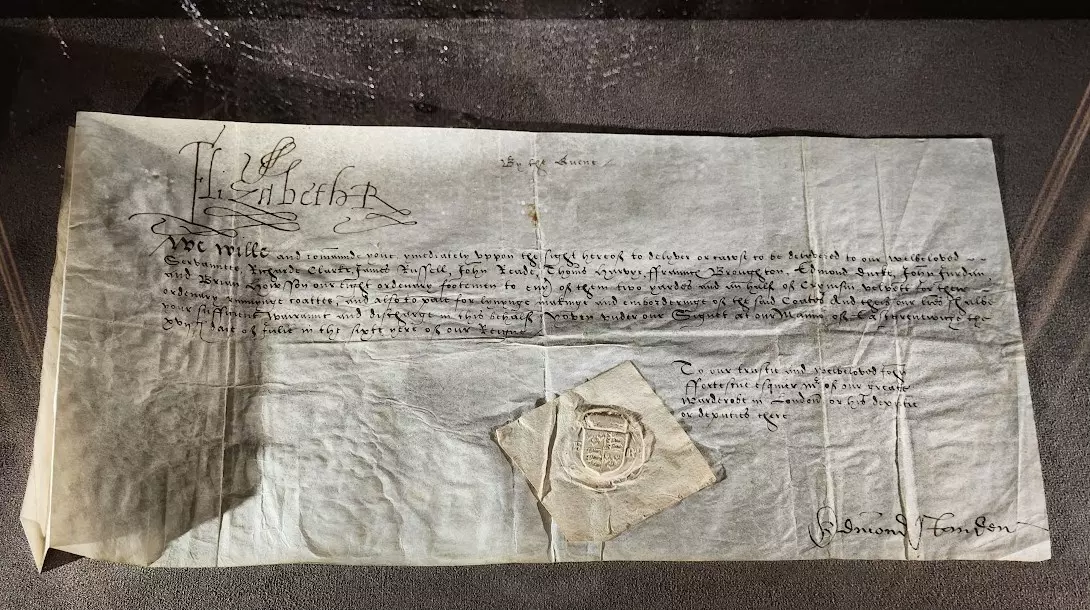 Elizabeth R
By the Quene
We wille and comaunde youe ymediately uppon the sight hereof to delyver or cawse to be delyvered to our welbeloved
Servauntes Richarde Clarke, James Russell, John Reade, Thoms ffraunc Broughton, Edmond John Jurdan
and Brian our eight ordenary footemen to eny of them two yardes and an half of Crymsin velvett for their
ordenary coattes, and also to paie for makinge and embroderinge of the said Coates And theis our lres shalbe
your sufficient warraunt and discharge in this behalf Yoven under our Signet at our Manor of the
xviith daie of Julie in the sixth yere of our Reigne
To our trustie and welbeloved John
ffortescue esquier mr of our greate
Warderobe in London or his deputie
or deputies there
Edmond Standen